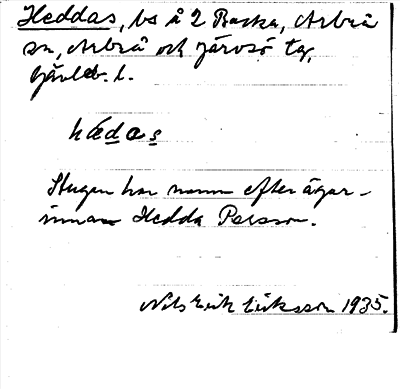 Heddas, bs å 2 Backa, Arbrå
sn, Arbrå och Järvsö tg,
Gävleb. l.
hẹdas
Stugan har namn efter ägar-
innan Hedda Persson.
Nils Erik Eriksson 1935.